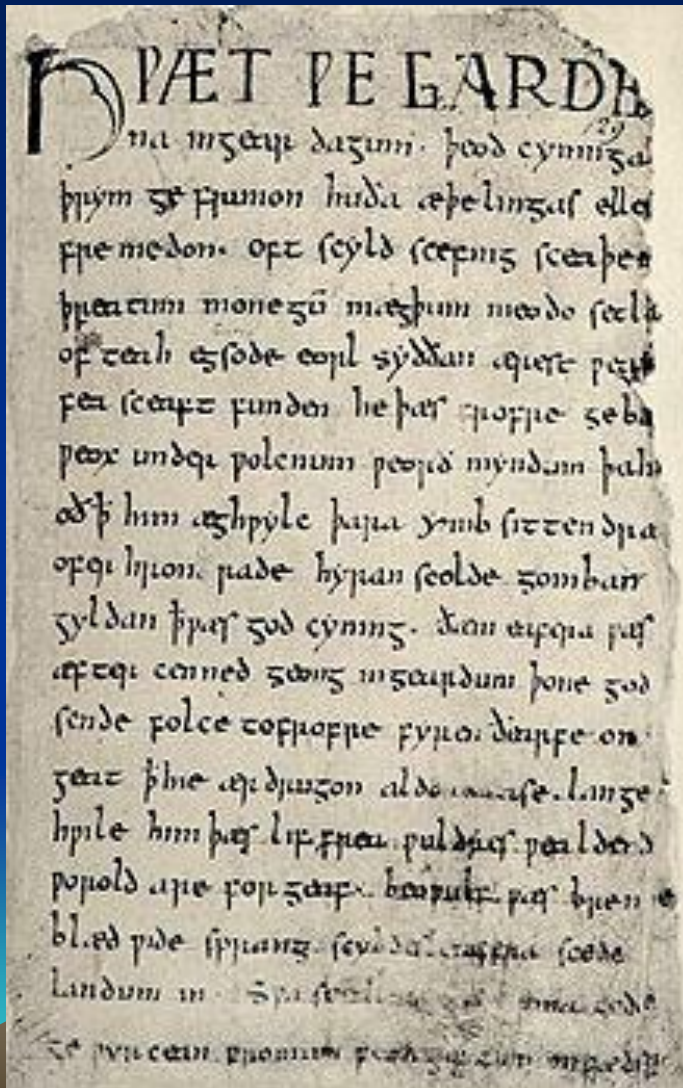 HǷÆT ǷE GARDE
129
na ingear dagum. þeod cyninga
þrym ge frunon huða æþelingas elle
fremedon. oft scyld scefing sceaþen
þreatum monegū mægþum meodo setla
of teah egsode eorl syððan ærest ƿear
fea sceaft funden he þæs frofre geba
ƿeox under ƿolcnum ƿeorð myndum þah
oð ꝥ him æghƿylc þara ymb sittendra
ofer hron rade hyran scolde gomban
gyldan ꝥ ƿæs god cyning. ðæm eafera ƿæs
æfter cenned geong ingeardum þone god
sende folce tofrofre fyren ðearfe on
geat ꝥ hie ær drugon aldor ase. lange
hƿile him þæs liffrea ƿuldres ƿealdend
ƿorold are for geaf. beoƿulf ƿæs breme
blæd ƿide sprang scyldes eafera scede
landum in. Sƿa sceal guma gode
ge ƿyrcean fromum feoh giftum